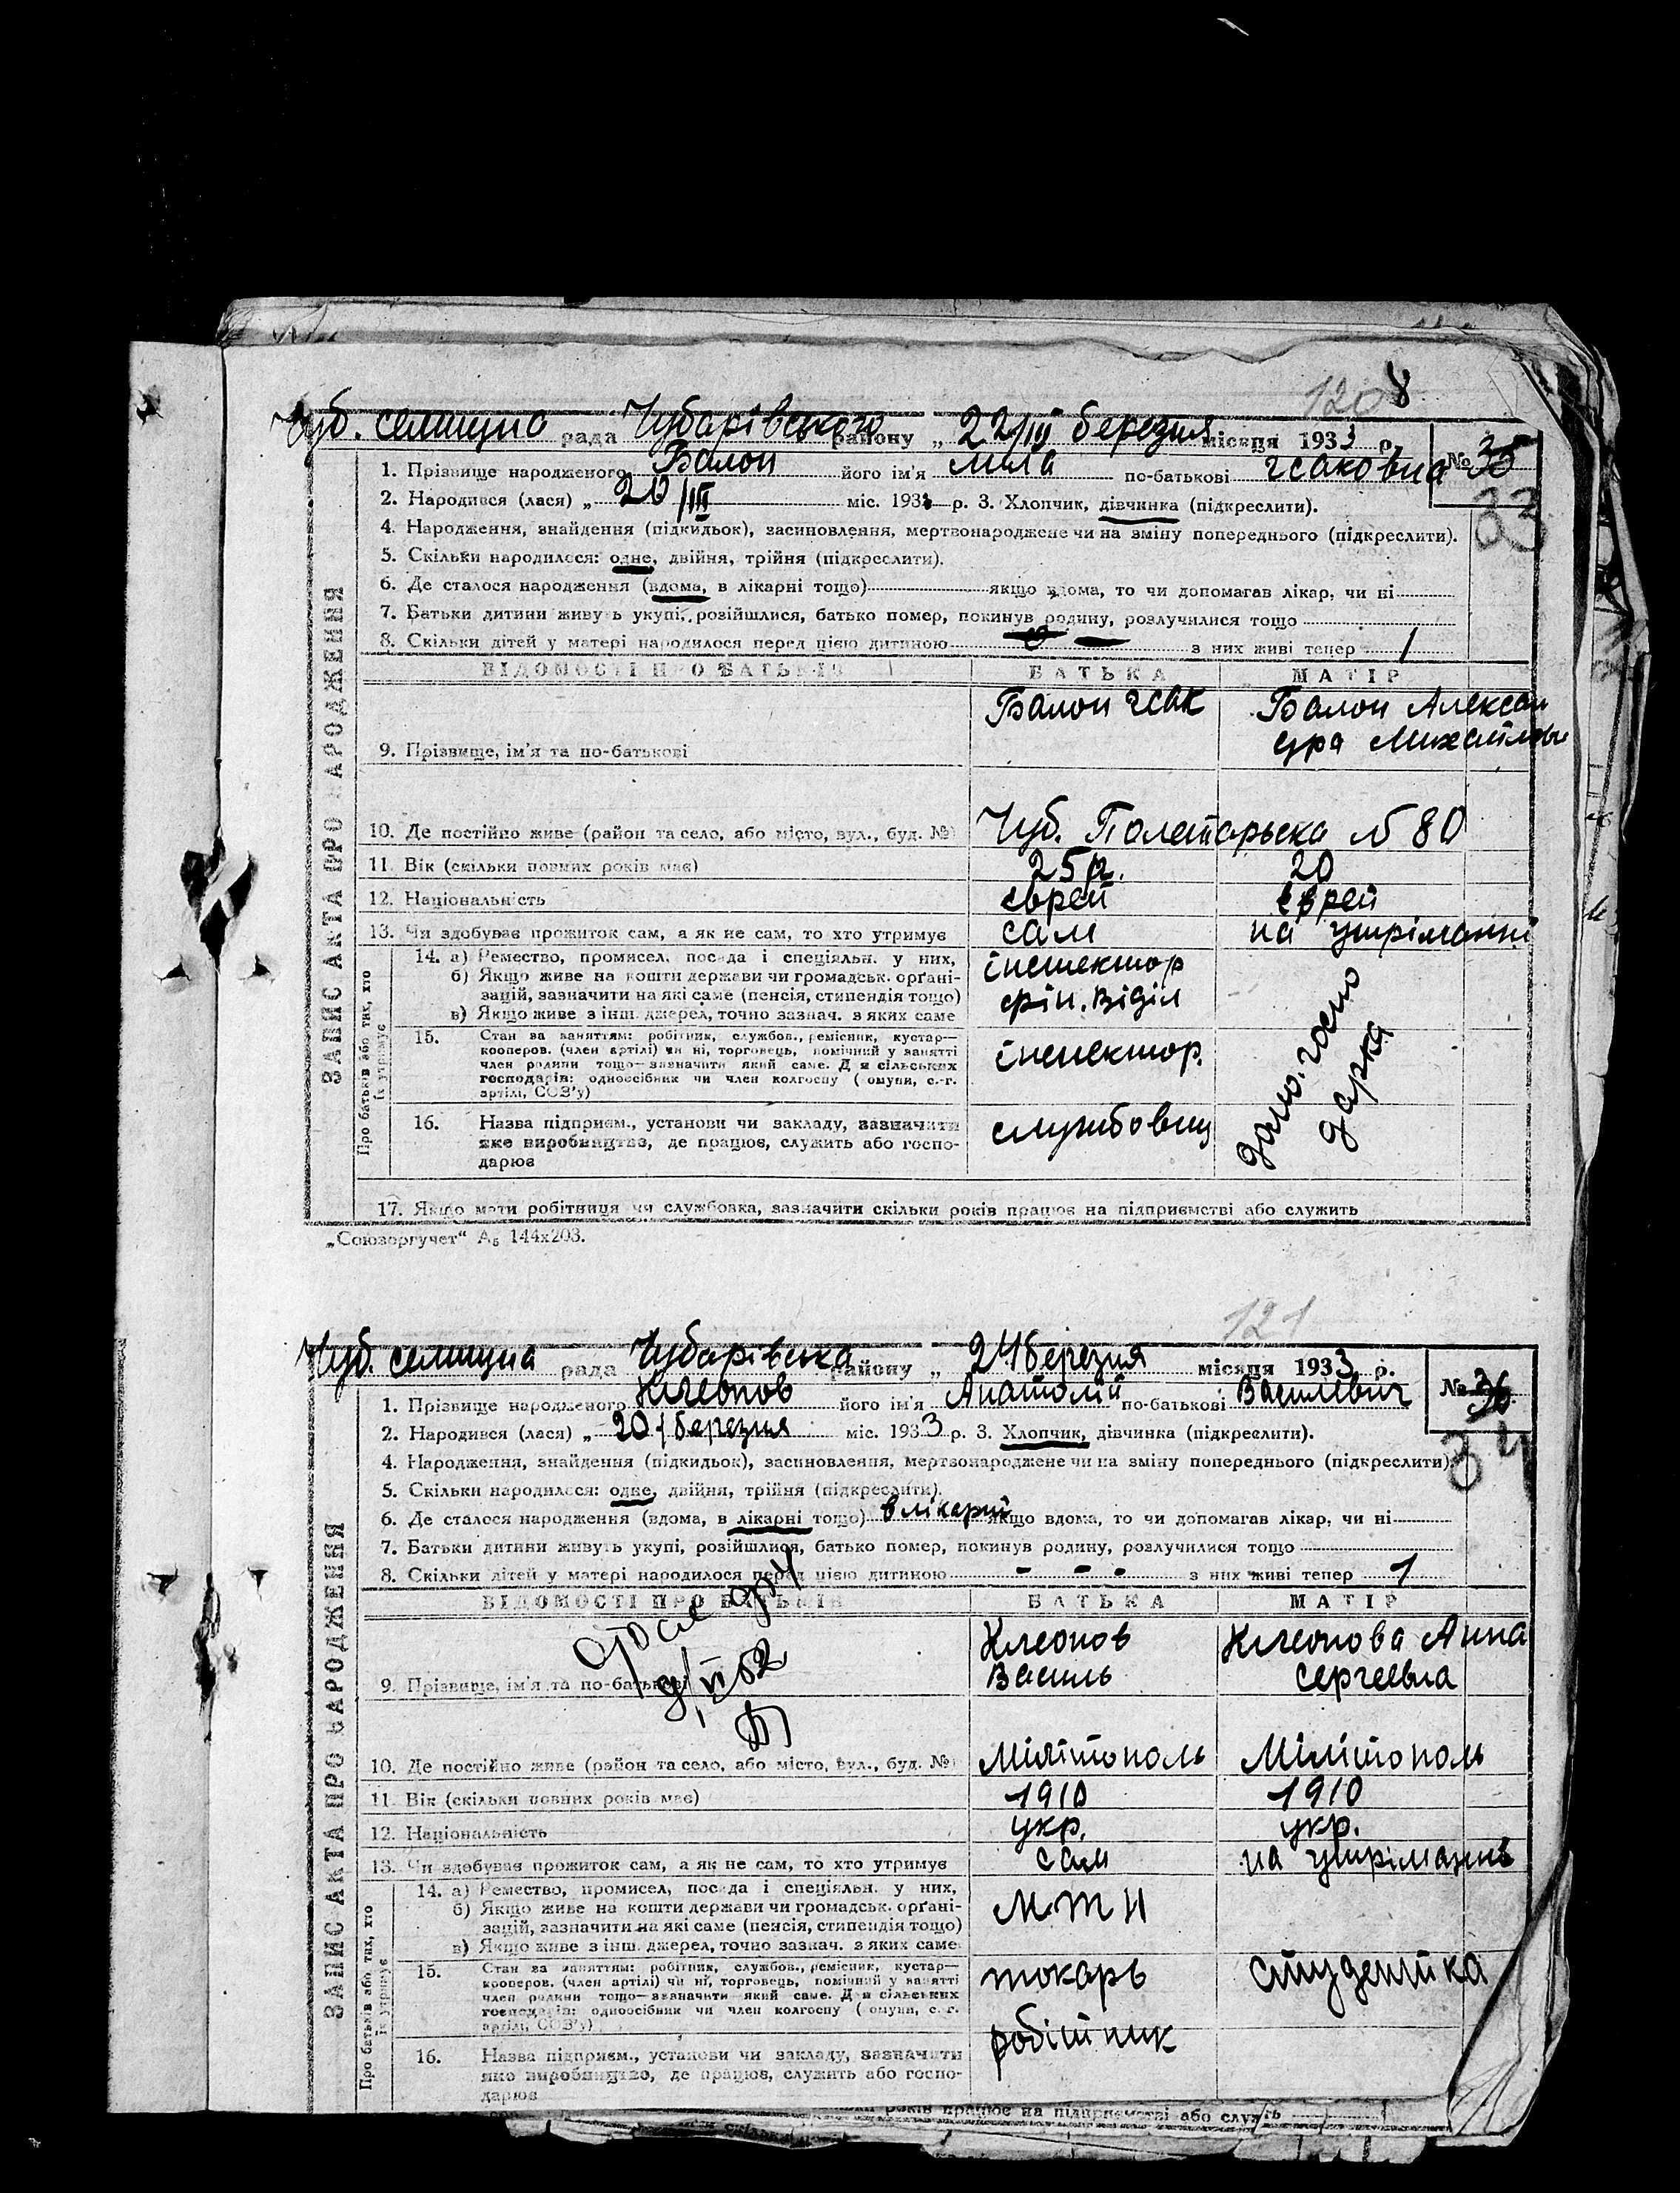 120 8
Чуб. селищна рада Чубарівського району „ 22/III березня місяця 1933 р. № 35
33
ЗАПИС АКТА ПРО НАРОДЖЕННЯ
1. Прізвище народженого Балон його ім'я Мила по-батькові Ісаковна
2. Народився (лася) „ 20/III міс. 193 р. 3. Хлопчик, дівчинка (підкреслити).
4. Народження, знайдення (підкидьок), засиновлення, мертвонароджене чи на зміну попереднього (підкреслити).
5. Скільки народилося: одне, двійня, трійня (підкреслити).
6. Де сталося народження (вдома, в лікарні тощо) якщо вдома, то чи допомагав лікар, чи ні
7. Батьки дитини живуть укупі, розійшлися, батько помер, покинув родину, розлучилися тощо
8. Скільки дітей у матері народилося перед цією дитиною з них живі тепер 1
ВІДОМОСТІ ПРО БАТЬКІВ БАТЬКА МАТІР
Балон Ісак Балон Алексан
дра Михайловн
9. Прізвище, ім'я та по-батькові
10. Де постійно живе (район та село, або місто, вул., буд. №) Чуб. Полетарьска № 80
11. Вік (скільки повних років має) 25 р. 20
12. Національність еврей еврей
13. Чи здобував прожиток сам, а як не сам, то хто утримує сам на утріманні
Про батьків або тих, хто їх утримує
14. а) Ремество, промисел, посада і спеціяльн. у них, інспектор
б) Якщо живе на кошти держави чи громадськ. орґані-
зацій, зазначити на які саме (пенсія, стипендія тощо) фін. Віділ
в) Якщо живе з інш. джерел, точно зазнач. з яких саме
15. Стан за заняттям: робітник, службов., ремісник, кустар—
кооперов. (член артілі) чи ні, торговець, помічний у занятті
член родини тощо—зазначити який саме. Для сільських
господарів: одноосібник чи член колгоспу (комуни, с.-г.
артілі, СОЗ'у)
інспектор.
домо. госпо
дарка
16. Назва підприєм., установи чи закладу, зазначити
яке виробництво, де працює, служить або госпо-
дарює
службовиц
17. Якщо мати робітниця чи службовка, зазначити скільки років працює на підприємстві або служить
„Союзоргучет“ А5 144х203.
121
Чуб. селищна рада Чубарівська району „ 24 березня місяця 1933 р. № 36
34
ЗАПИС АКТА ПРО НАРОДЖЕННЯ
1. Прізвище народженого Клеопов його ім'я Анатолій по-батькові Василевич
2. Народився (лася) „ 20/березня міс. 1933 р. 3. Хлопчик, дівчинка (підкреслити).
4. Народження, знайдення (підкидьок), засиновлення, мертвонароджене чи на зміну попереднього (підкреслити)
5. Скільки народилося: одне, двійня, трійня (підкреслити).
6. Де сталося народження (вдома, в лікарні тощо) в лікарні якщо вдома, то чи допомагав лікар, чи ні
7. Батьки дитини живуть укупі, розійшлися, батько помер, покинув родину, розлучилися тощо
8. Скільки дітей у матері народилося перед цією дитиною - - - з них живі тепер 1
ВІДОМОСТІ ПРО БАТЬКІВ БАТЬКА МАТІР
Клеопов Клеопова Анна
Василь Сергеевна
9/VI 52
9. Прізвище, ім'я та по-батькові
10. Де постійно живе (район та село, або місто, вул., буд. №) Мілітополь Мілітополь
11. Вік (скільки повних років має) 1910 1910
12. Національність укр. укр.
13. Чи здобував прожиток сам, а як не сам, то хто утримує сам на утріманні
Про батьків або тих, хто їх утримує
14. а) Ремество, промисел, посада і спеціяльн. у них,
б) Якщо живе на кошти держави чи громадськ. орґані-
зацій, зазначити на які саме (пенсія, стипендія тощо)
в) Якщо живе з інш. джерел, точно зазнач. з яких саме
15. Стан за заняттям: робітник, службов., ремісник, кустар—
кооперов. (член артілі) чи ні, торговець, помічний у занятті
член родини тощо—зазначити який саме. Для сільських
господарів: одноосібник чи член колгоспу (комуни, с.-г.
артілі, СОЗ'у)
токарь студентка
робітник
16. Назва підприєм., установи чи закладу, зазначити
яке виробництво, де працює, служить або госпо-
дарює
років працює на підприємстві або служить